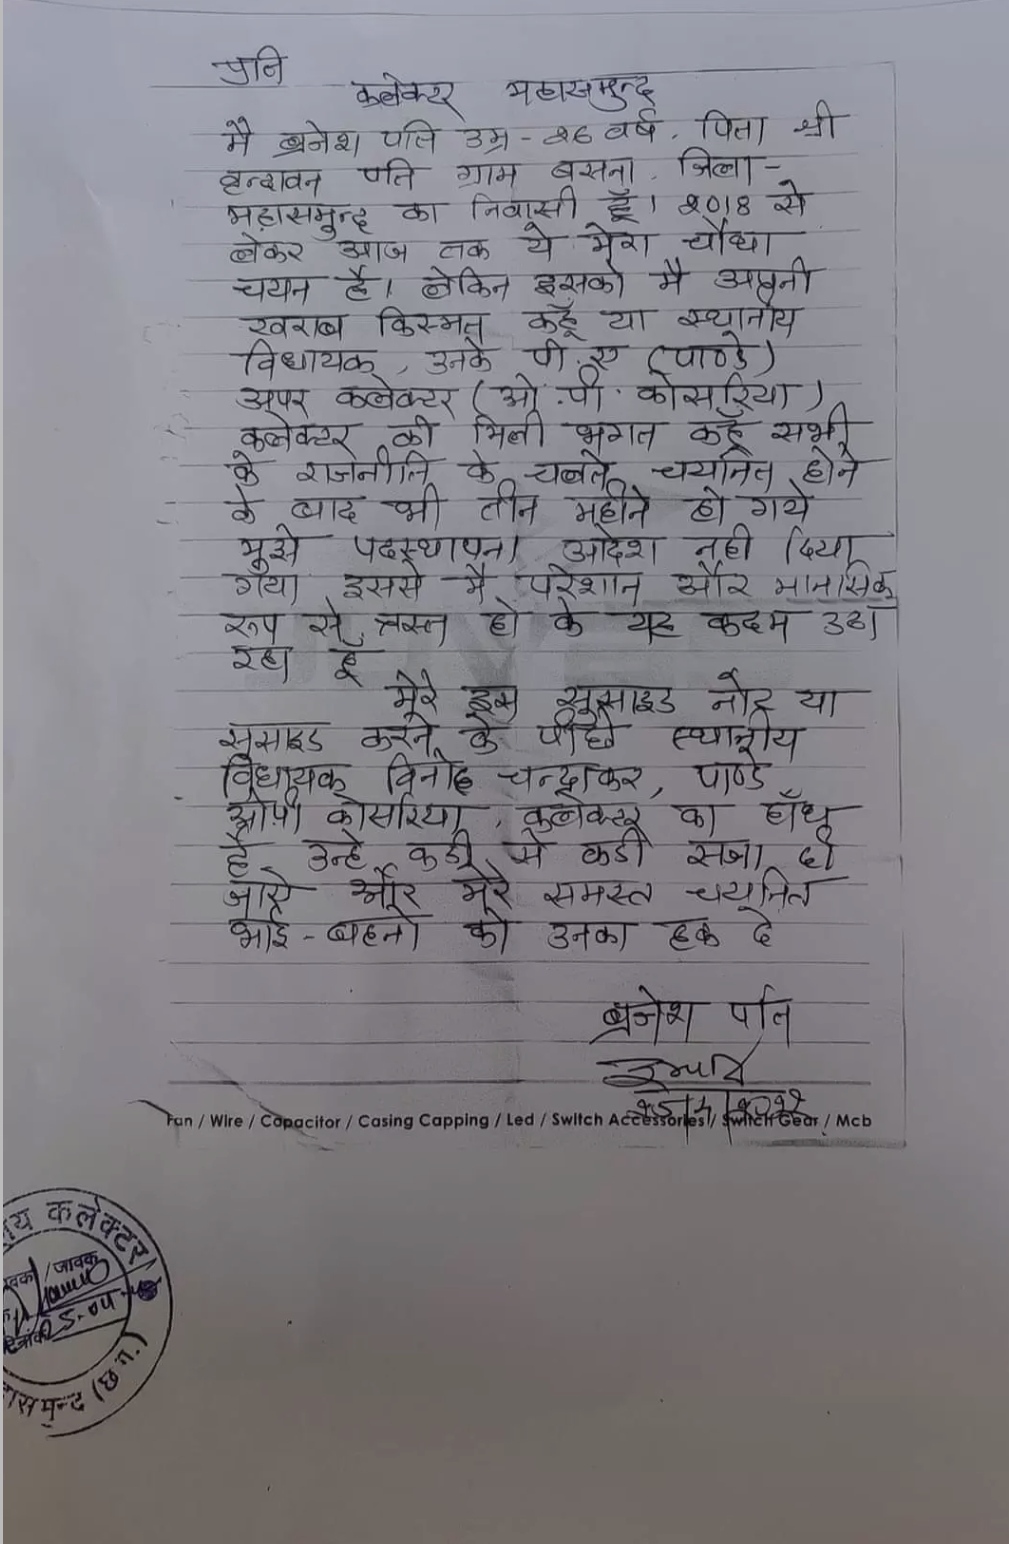 प्रति
कलेक्टर महासमुन्द
मै ब्रजेश पति उम्र - २६ वर्ष. पिता श्री
पति ग्राम बसना. जिला -
महासमुन्द का निवासी हूँ। २०18 से
लेकर आज तक ये मेरा चौथा
चयन है। लेकिन इसको मै अपनी
खराब किस्मत कहूँ या स्थानीय
विधायक, उनके पी.ए (पाण्डे)
अपर कलेक्टर (ओ.पी. कोसरिया)
कलेक्टर की मिली भगत कहूँ सभी
के राजनीति के चलते चयनित होने
के बाद भी तीन महीने हो गये
मुझे पदस्थापना आदेश नही दिया
गया इससे मै परेशान और मानसिक
रूप से त्रस्त हो के यह कदम उठा
रहा हूँ
मेरे इस सुसाइड नोट या
सुसाइड करने के पीछे स्थानीय
विधायक विनोद चन्द्राकर, पाण्डे
ओपी कोसरिया, कलेक्टर का हाँथ
है उन्हे कडी से कडी सजा दी
जाए और मेरे समस्त चयनित
भाई - बहनो को उनका हक दे
ब्रजेश पति
Fan / Wire / Capacitor / Casing Capping / Led / Switch Accessories / Switch Gear / Mcb
कलेक्टर
/ जावक
(छ.ग.)